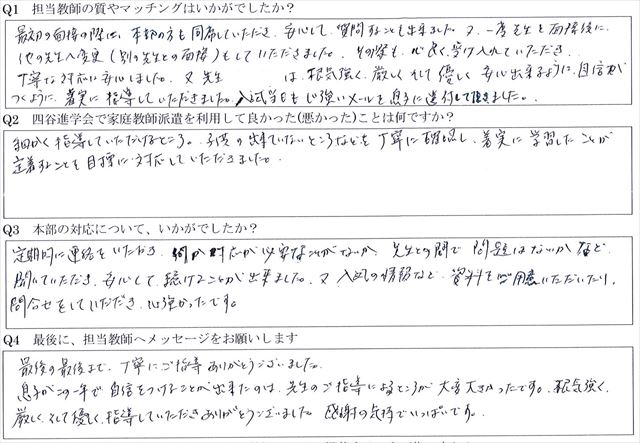 Q1 担当教師の質やマッチングはいかがでしたか？
最初の面接の際に、本部の方も同席していただき、安心して質問することも出来ました。又、一度先生と面接後に、
他の先生へ変更（別の先生との面接）もしていただきました。その際も、心良く受け入れていただき、
丁寧な対応に安心しました。又先生は、根気強く、厳しくそして優しく安心出来るように、自信が
つくように、着実に指導していただきました。入試当日も心強いメールを息子に送付して頂きました。
Q2 四谷進学会で家庭教師派遣を利用して良かった(悪かった)ことは何ですか？
細かく指導していただけるところ。子供の出来ていないところなどを丁寧に確認し、着実に学習したことが
定着することを目標に対応していただきました。
Q3 本部の対応について、いかがでしたか？
定期的に連絡をいただき、何か対応が必要なことがないか、先生との間で問題はないかなど、
聞いていただき、安心して続けることが出来ました。又、入試の情報など、資料をご用意いただいたり、
問合せをしていただき、心強かったです。
Q4 最後に、担当教師へメッセージをお願いします
最後の最後まで、丁寧にご指導ありがとうございました。
息子がこの一年で自信をつけることが出来たのは、先生のご指導によるところが大変大きかったです。根気強く、
厳しく、そして優しく指導していただきありがとうございました。感謝の気持でいっぱいです。